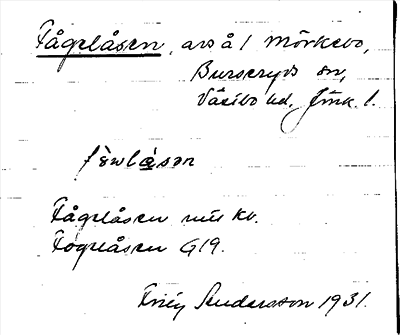 Fågelåsen, avs å 1 Mörkebo,
Burseryds sn,
Västbo hd, Jönk. l.
fȯwlåsən
Fågelåsen utn kv.
Fogelåsen G19.
Frey Andersson 1931.